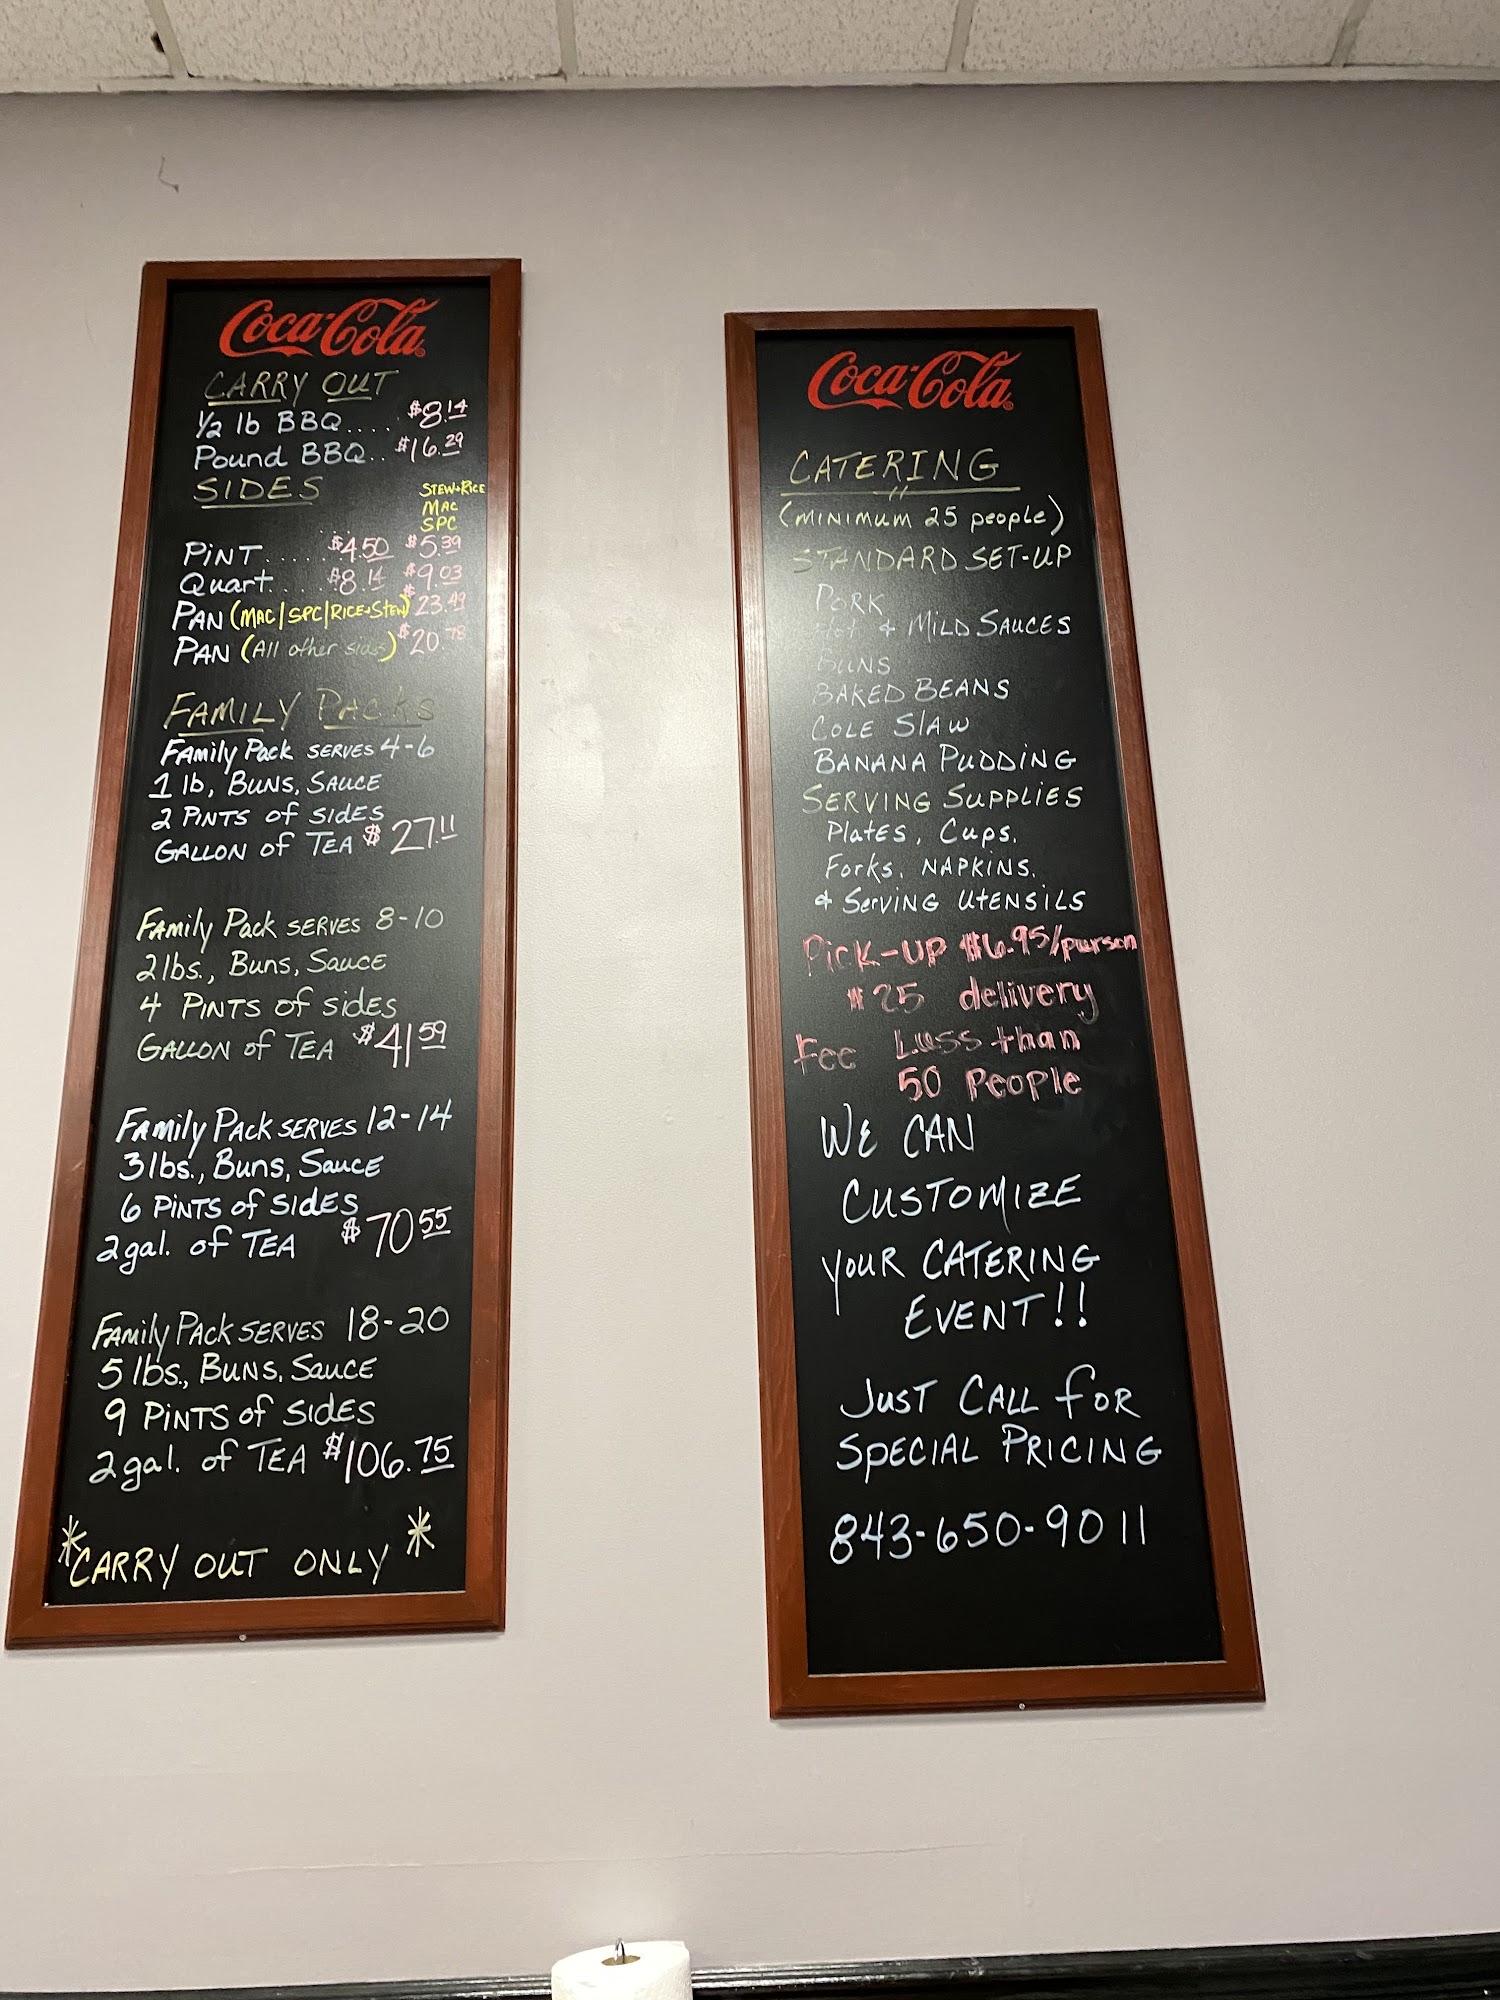 Coca-Cola
CARRY OUT
1/2 lb BBQ.... $8.14
Pound BBQ.. $16.29
SIDES
STEW+RICE
MAC
SPC
PINT..... $4.50 $5.39
Quart.... $8.14 $9.03
PAN (MAC/SPC/RICE+STEW) $23.49
PAN (All other sides) $20.78
FAMILY PACKS
FAMily PAck SERVES 4-6
1 lb, BUNS, SAUCE
2 PINTS of sides
GALLON of TEA $27.11
FAMily PAck SERVES 8-10
2 lbs., Buns, Sauce
4 PINTS of sides
GALLON of TEA $41.59
FAMily PAck SERVES 12-14
3 lbs., Buns, Sauce
6 PINTS of SIDES
2 gal. of TEA $70.55
FAMily PAck SERVES 18-20
5 lbs., BUNS, SAUCE
9 PINTS of SIDES
2 gal. of TEA $106.75
*CARRY OUT ONLY*
Coca-Cola
CATERING
(MINIMUM 25 people)
STANDARD SET-UP
PORK
Hot & MILD SAUCES
BUNS
BAKED BEANS
COLE SLAW
BANANA PUDDING
SERVING SUPPLIES
PlatES, Cups,
Forks, NAPKINS,
& SERVING UTENSILS
Pick-UP $6.95/person
$25 delivery
Fee Less than
50 people
WE CAN
CUSTOMIZE
your CATERING
EVENT!!
JUST CALL for
SPECIAL PRICING
843-650-9011